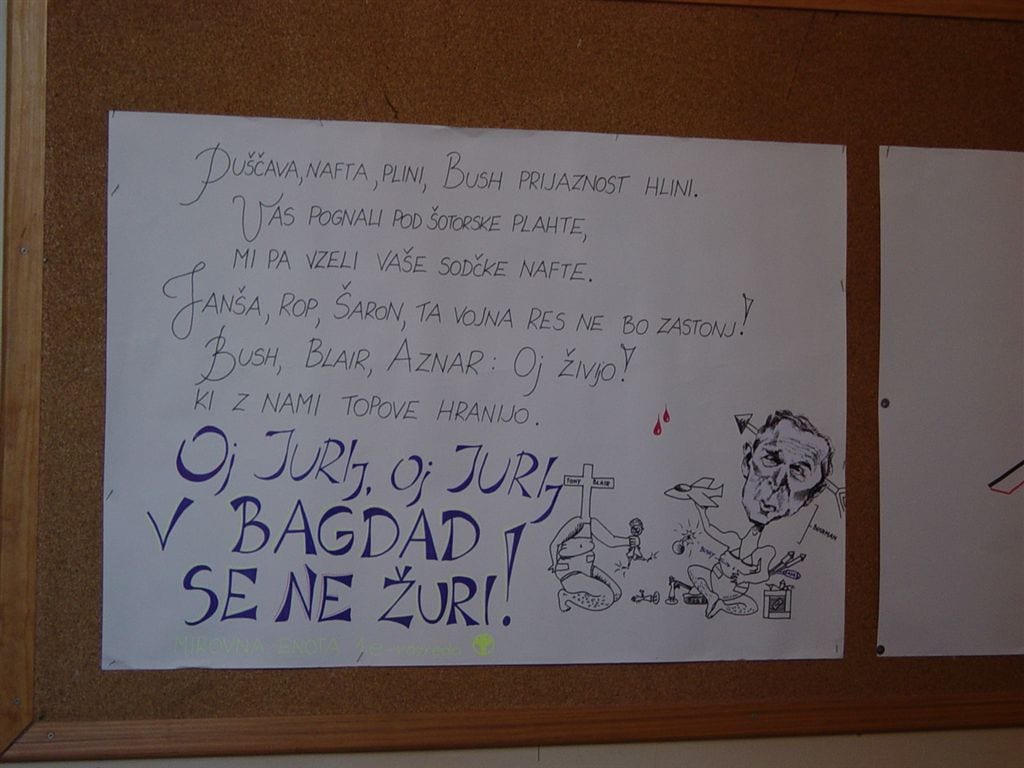 PUŠČAVA, NAFTA, PLINI, BUSH PRIJAZNOST HLINI.
VAS POGNALI POD ŠOTORSKE PLAHTE,
MI PA VZELI VAŠE SODČKE NAFTE.
JANŠA, ROP, ŠARON, TA VOJNA RES NE BO ZASTONJ!
BUSH, BLAIR, AZNAR: OJ ŽIVJO!
KI Z NAMI TOPOVE HRANIJO.
OJ JURIJ, OJ JURIJ
V BAGDAD
SE NE ŽURI!
TONY BLAIR
MIROVNA ENOTA 4.e razreda